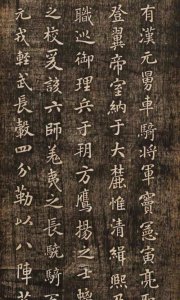 有漢元舅車騎將軍竇憲寅亮
登翼帝室納于大麓惟清緝熙
職巡御理兵于朔方鷹揚之
之校爰該六師羌夷之長驍騎
元戎輕武長轂四分勒以八陣